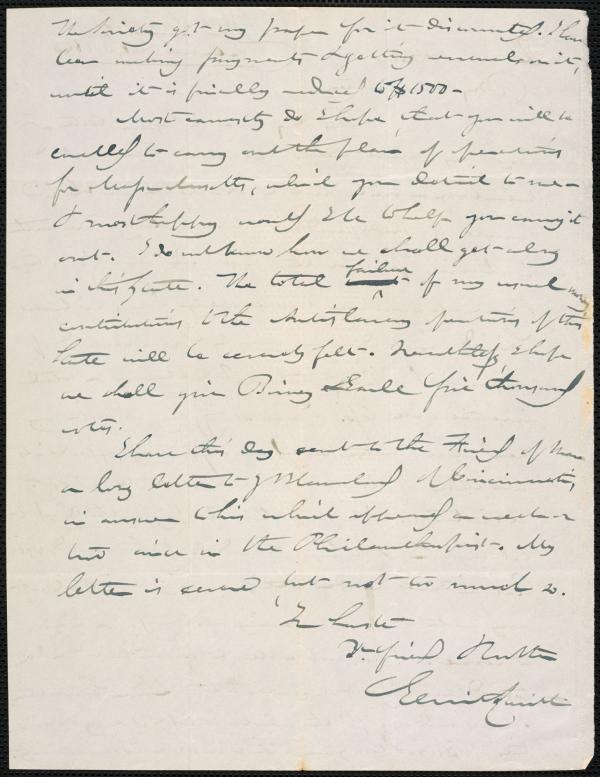 The Society got my paper for it discounted. I have
been making payments & getting renewals on it,
until it is finally reduced to $1500 -
Most earnestly do I hope that you will be
enabled to carry out the plan of operations
for Massachusetts, which you detail to me -
& most happy would I be to help you carry it
out. I do not know how we shall get along
in this State. The total failure of my usual money
contributions to the Antislavery operations of this
State will be severely felt. Nevertheless I hope
we shall give Birney & Earle five thousand
votes.
I have this day sent to the Friend of Man
a long letter to J Blanchard of Cincinnati,
in answer to his which appeared a week or
two since in the Philanthropist. My
letter is severe but not too much so.
In haste
Yr. friend & brother
Gerrit Smith